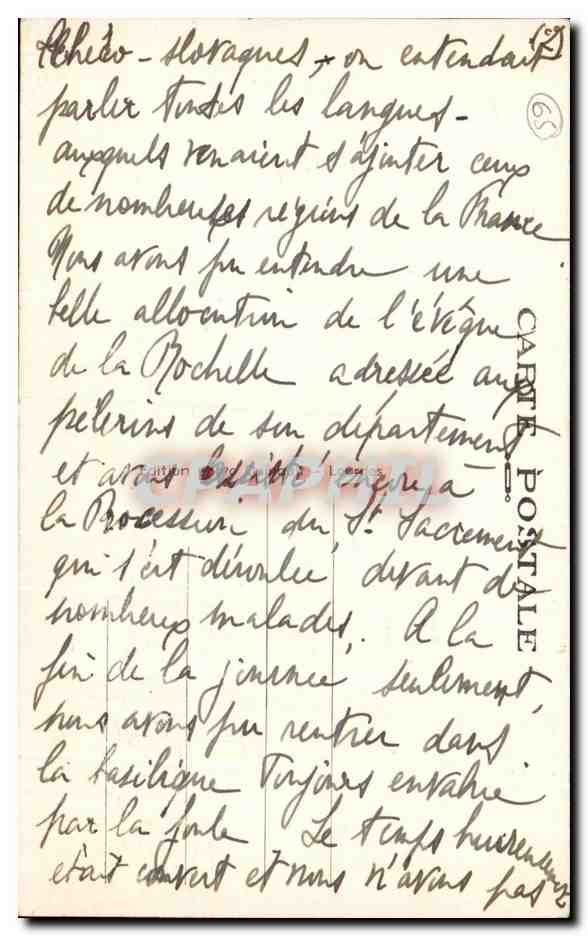 (2)
65
Tchéco-slovaques, on entendait
parler toutes les langues -
auxquels venaient s'ajouter ceux
de nombreuses régions de la France
Nous avons pu entendre une
belle allocution de l'évêque
de la Rochelle adressée aux
pèlerins de son département
et avons assisté encore à
la Procession du St Sacrement
qui s'est déroulée devant de
nombreux malades. A la
fin de la journée seulement,
nous avons pu rentrer dans
la basilique toujours envahie
par la foule Le temps heureusement
était couvert et nous n'avons pas
CARTE POSTALE
Edition Lourdes
CPAPHIL